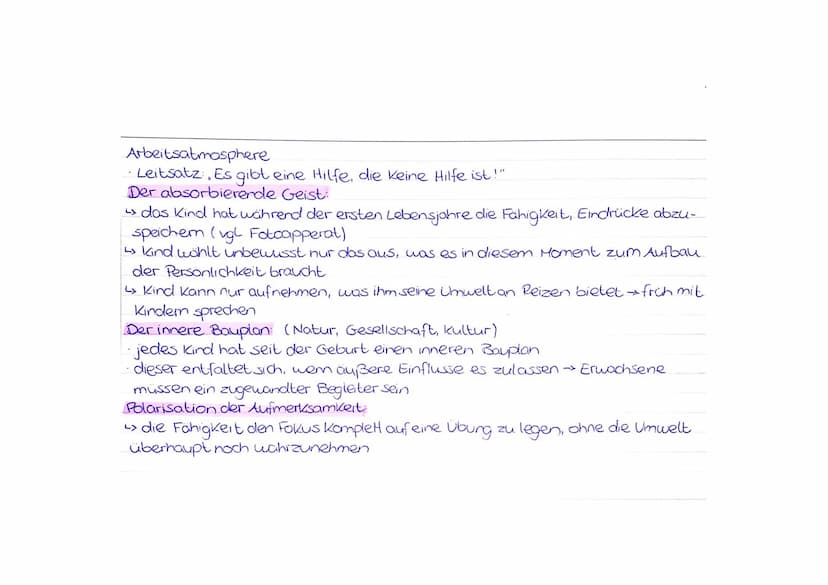 Arbeitsatmosphere
· Leitsatz: „Es gibt eine Hilfe, die keine Hilfe ist!"
Der absorbierende Geist:
↳ das Kind hat während der ersten Lebensjahre die Fähigkeit, Eindrücke abzu-
speichern (vgl. Fotoapperat)
↳ Kind wählt unbewusst nur das aus, was es in diesem Moment zum Aufbau
der Persönlichkeit braucht
↳ Kind kann nur aufnehmen, was ihm seine Umwelt an Reizen bietet → früh mit
Kindern sprechen
Der innere Bauplan: (Natur, Gesellschaft, Kultur)
· jedes Kind hat seit der Geburt einen inneren Bauplan
· dieser entfaltet sich, wenn äußere Einflüsse es zulassen → Erwachsene
müssen ein zugewandter Begleiter sein
Polarisation der Aufmerksamkeit
↳ die Fähigkeit den Fokus komplett auf eine Übung zu legen, ohne die Umwelt
überhaupt noch wahrzunehmen